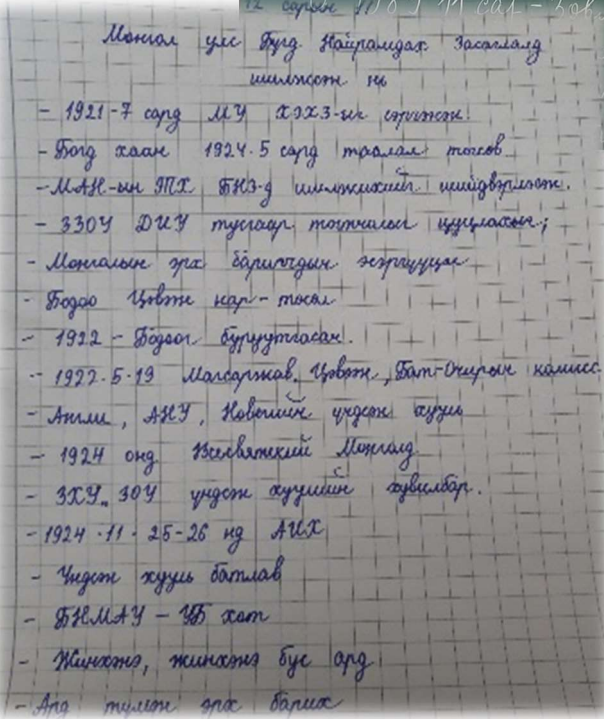 12 сарын 11
11 сар -
Монгол улс Бүгд Найрамдах Засаглалд
шилжсэн нь
- 1921-7 сард МУ ХЭХЗ-ыг сэргээж
- Богд хаан 1924.5 сард таалал төгсөв
- МАН-ын БНЗ-д шилжихийг шийдвэрлэж.
- ЗЗОУ ДИУ тусгаар тогтнолыг цуцлахыг;
- Монголын эрх баригчдын эсэргүүцэл
- Бодоо Цэвээн нар - төсөл
- 1922 - Бодоог буруутгасан.
- 1922.5.19 Магсаржав, Цэвээн, Бат-Очирын комисс
- Англи, АНУ, Норвегийн үндсэн хууль
- 1924 онд Всесвятский Монголд
- ЗХУ, ЗОУ үндсэн хуулийн хувилбар.
- 1924.11.25-26 нд АИХ
- Үндсэн хууль батлав
- БНМАУ - УБ хот
- Жинхэнэ, жинхэнэ бус ард
- Ард түмэн эрх барих